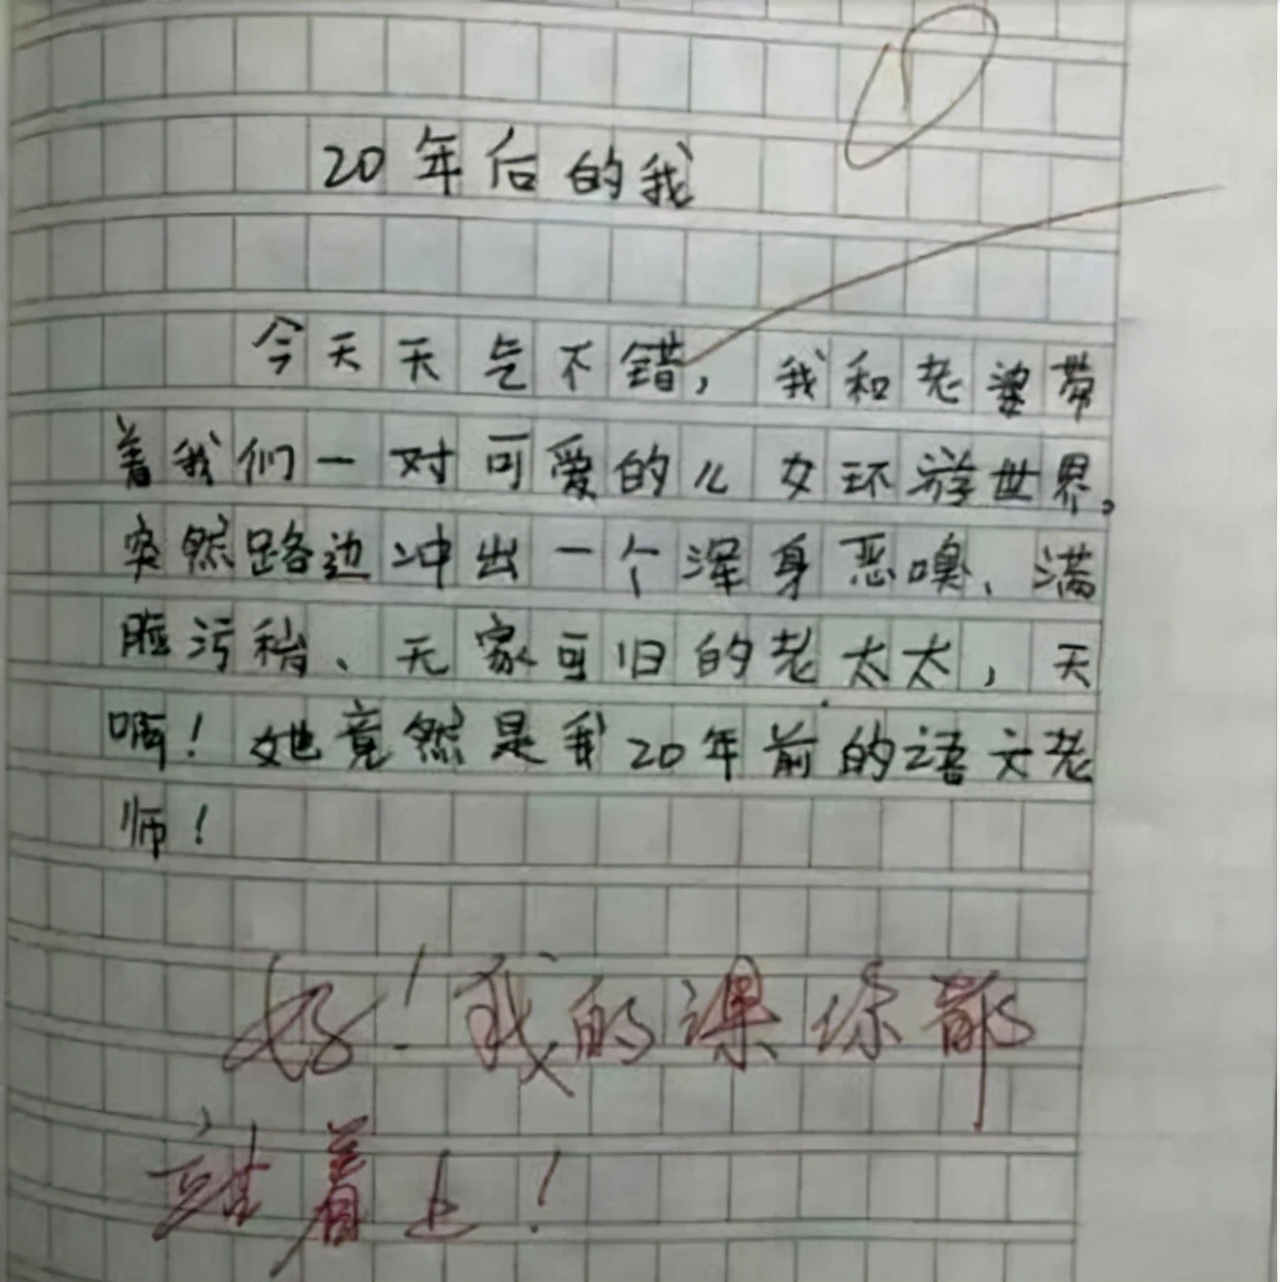 20年后的我
今天天气不错,我和老婆带
着我们一对可爱的儿女环游世界,
突然路边冲出一个浑身恶嗅、满
脸污秽、无家可归的老太太,天
啊!她竟然是我20年前的语文老
师!
好!我的课你都
站着上!